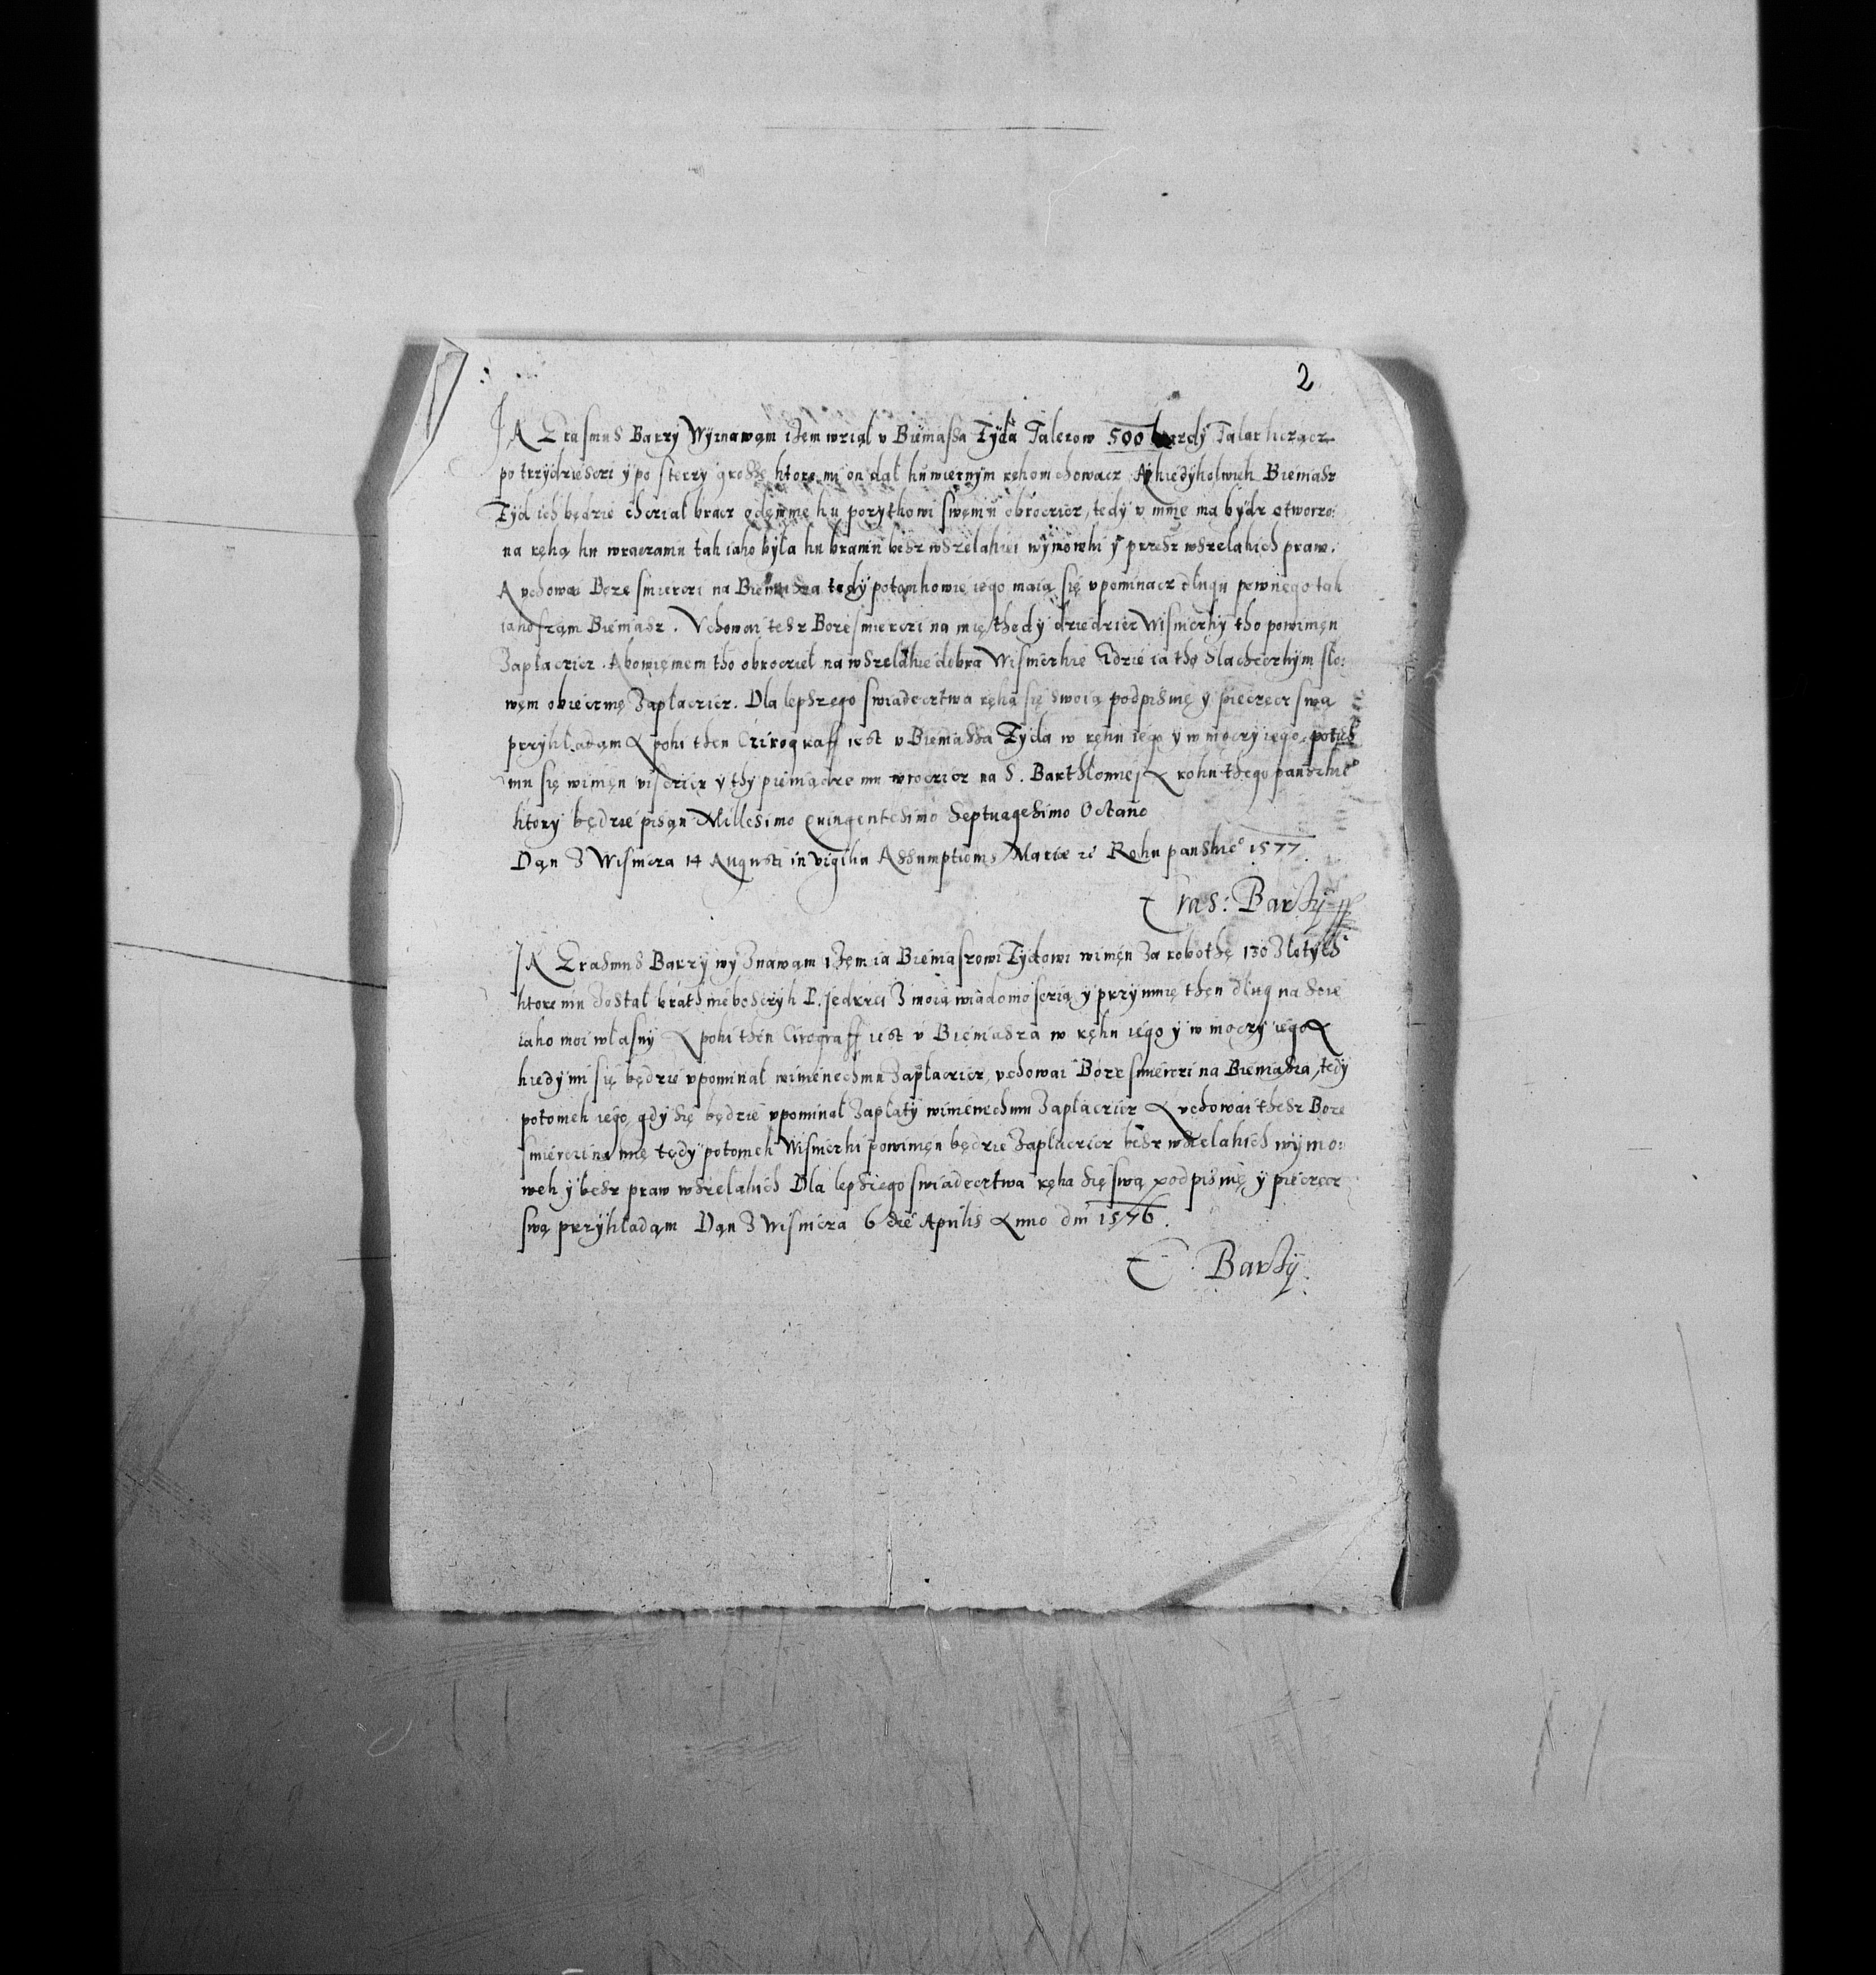 2
JA Erasmus Barzy Wyznawam iżem wziął v Biemassa Żyda Talerow 500 kazdy Talar liczącz
po trzydziesczi y po sterzy grosse ktore mi on dał ku wiernym rękom chowacz A kiedykolwiek Biemasz
Żyd ich będzie chcział bracz odemnie ku pozytkowi swemu obroczicz, tedy v mnie ma bydz otworzo:
na ręka ku wraczaniu tak iako była ku braniu besz wszelakiei wymowki y przesz wszelakich praw.
A vchowai Boze smierczi na Biemasza tedy potomkowie iego maią się vpominacz dlugu pewnego tak
iako sam Biemasz. Vchowai tesz Boze smierczi na mię thedy dziedzicz Wismierzky tho powinien
Zapłaczicz. Abowiemem tho obroczieł na wszelakie dobra Wismierskie Gdzie ia tho Slacheczkym sło:
wem obieczuię Zapłaczicz. Dla lepszego swiadecztwa ręką się swoią podpisuię y pieczęcz swą
przykładam A poki then Czirograff iest v Biemassa Żyda w ręku iego y w moczy iego potich
mu się winien visczicz y thy pieniądze mu wroczicz na S. Barthlomiej A roku thego panskie°
ktory będzie pisan Millesimo quingentesimo Septuagesimo Octauo
Dan Z Wismiza 14 Augusti in vigilia Assumptionis Mariæ Roku panskie° 1577
Eras: Barzy
JA Erasmus Barzy wyznawam iżem ia Biemaszowi Żydowi winien Za robothę 130 Złotych
ktore mu Zostal brath nieboszczyk P. Jedrzei Z moią wiadomosczią y przymuię then dlug na Sie
iako moi własny A poki then Cirograff iest v Biemasza w ręku iego y w moczy iego A
kiedy mi się będzie vpominał winienechmu Zapłaczicz, vchowai Boze smierczi na Biemasza, tedy
potomek iego gdy się będzie vpominał Zapłaty winienechmu Zapłaczicz A vchowai thesz Boze
smierczi na mię tedy potomek Wismerski powinien będzie Zapłaczicz besz wszelakich wymo:
wek y besz praw wszelakich Dla lepszego swiadecztwa ręką się swą podpisuię y pieczęcz
swą przykładam Dan Z Wismiza 6 die Aprilis Anno dni 1576.
E. Barzy